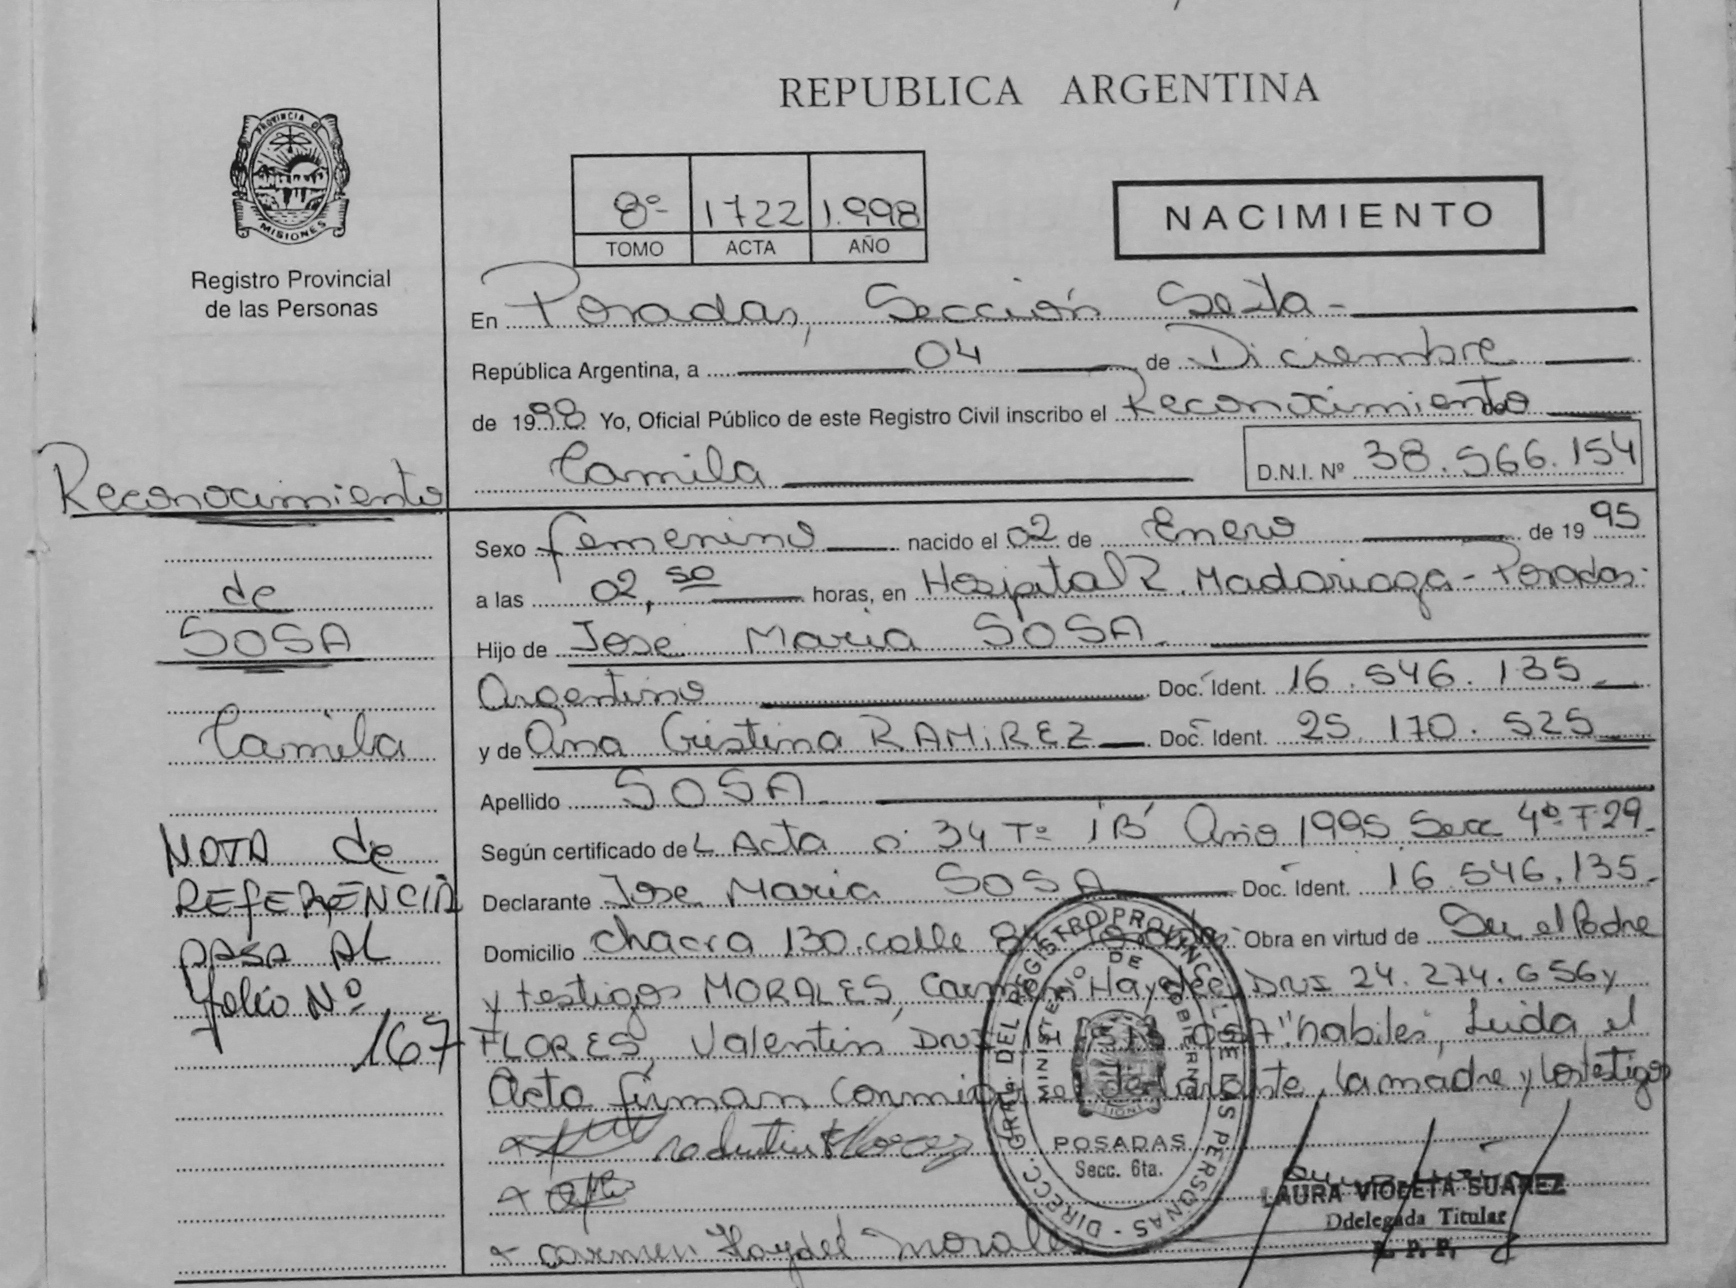 REPUBLICA ARGENTINA
PROVINCIA DE
MISIONES
Registro Provincial
de las Personas
8º 1722 1.998
TOMO ACTA AÑO
NACIMIENTO
En Posadas, Sección Sexta -
República Argentina, a 04 de Diciembre
de 1998 Yo, Oficial Público de este Registro Civil inscribo el Reconocimiento de
Camila D.N.I. Nº 38.566.154
Sexo femenino nacido el 02 de Enero de 1995
a las 02,50 horas, en Hospital R. Madariaga - Posadas.
Hijo de José María SOSA
Argentino Doc. Ident. 16.546.135
y de Ana Cristina RAMIREZ Doc. Ident. 25.170.525
Apellido SOSA
Según certificado de L Acta 34 Tº 1'B' Año 1995 Secc 4º F 29.
Declarante Jose Maria SOSA Doc. Ident. 16.546.135.
Domicilio chacra 130. calle Obra en virtud de Ser el Padre
y testigos MORALES, Carmen Haydee, DNI 24.274.656 y
FLORES, Valentin DNI "habiles", Leida el
Acta firman conmigo el declarante, la madre y los testigos
Carmen Haydeé Morales
Reconocimiento
de
SOSA
Camila
NOTA de
REFERENCIA
PASA AL
folio Nº
167
DIRECC. GRAL. DEL REGISTRO PROVINCIAL DE LAS PERSONAS
MINISTERIO DE GOBIERNO
MISIONES
POSADAS
Secc. 6ta.
LAURA VIOLETA SUAREZ
Ddelegada Titular
R. P. P.